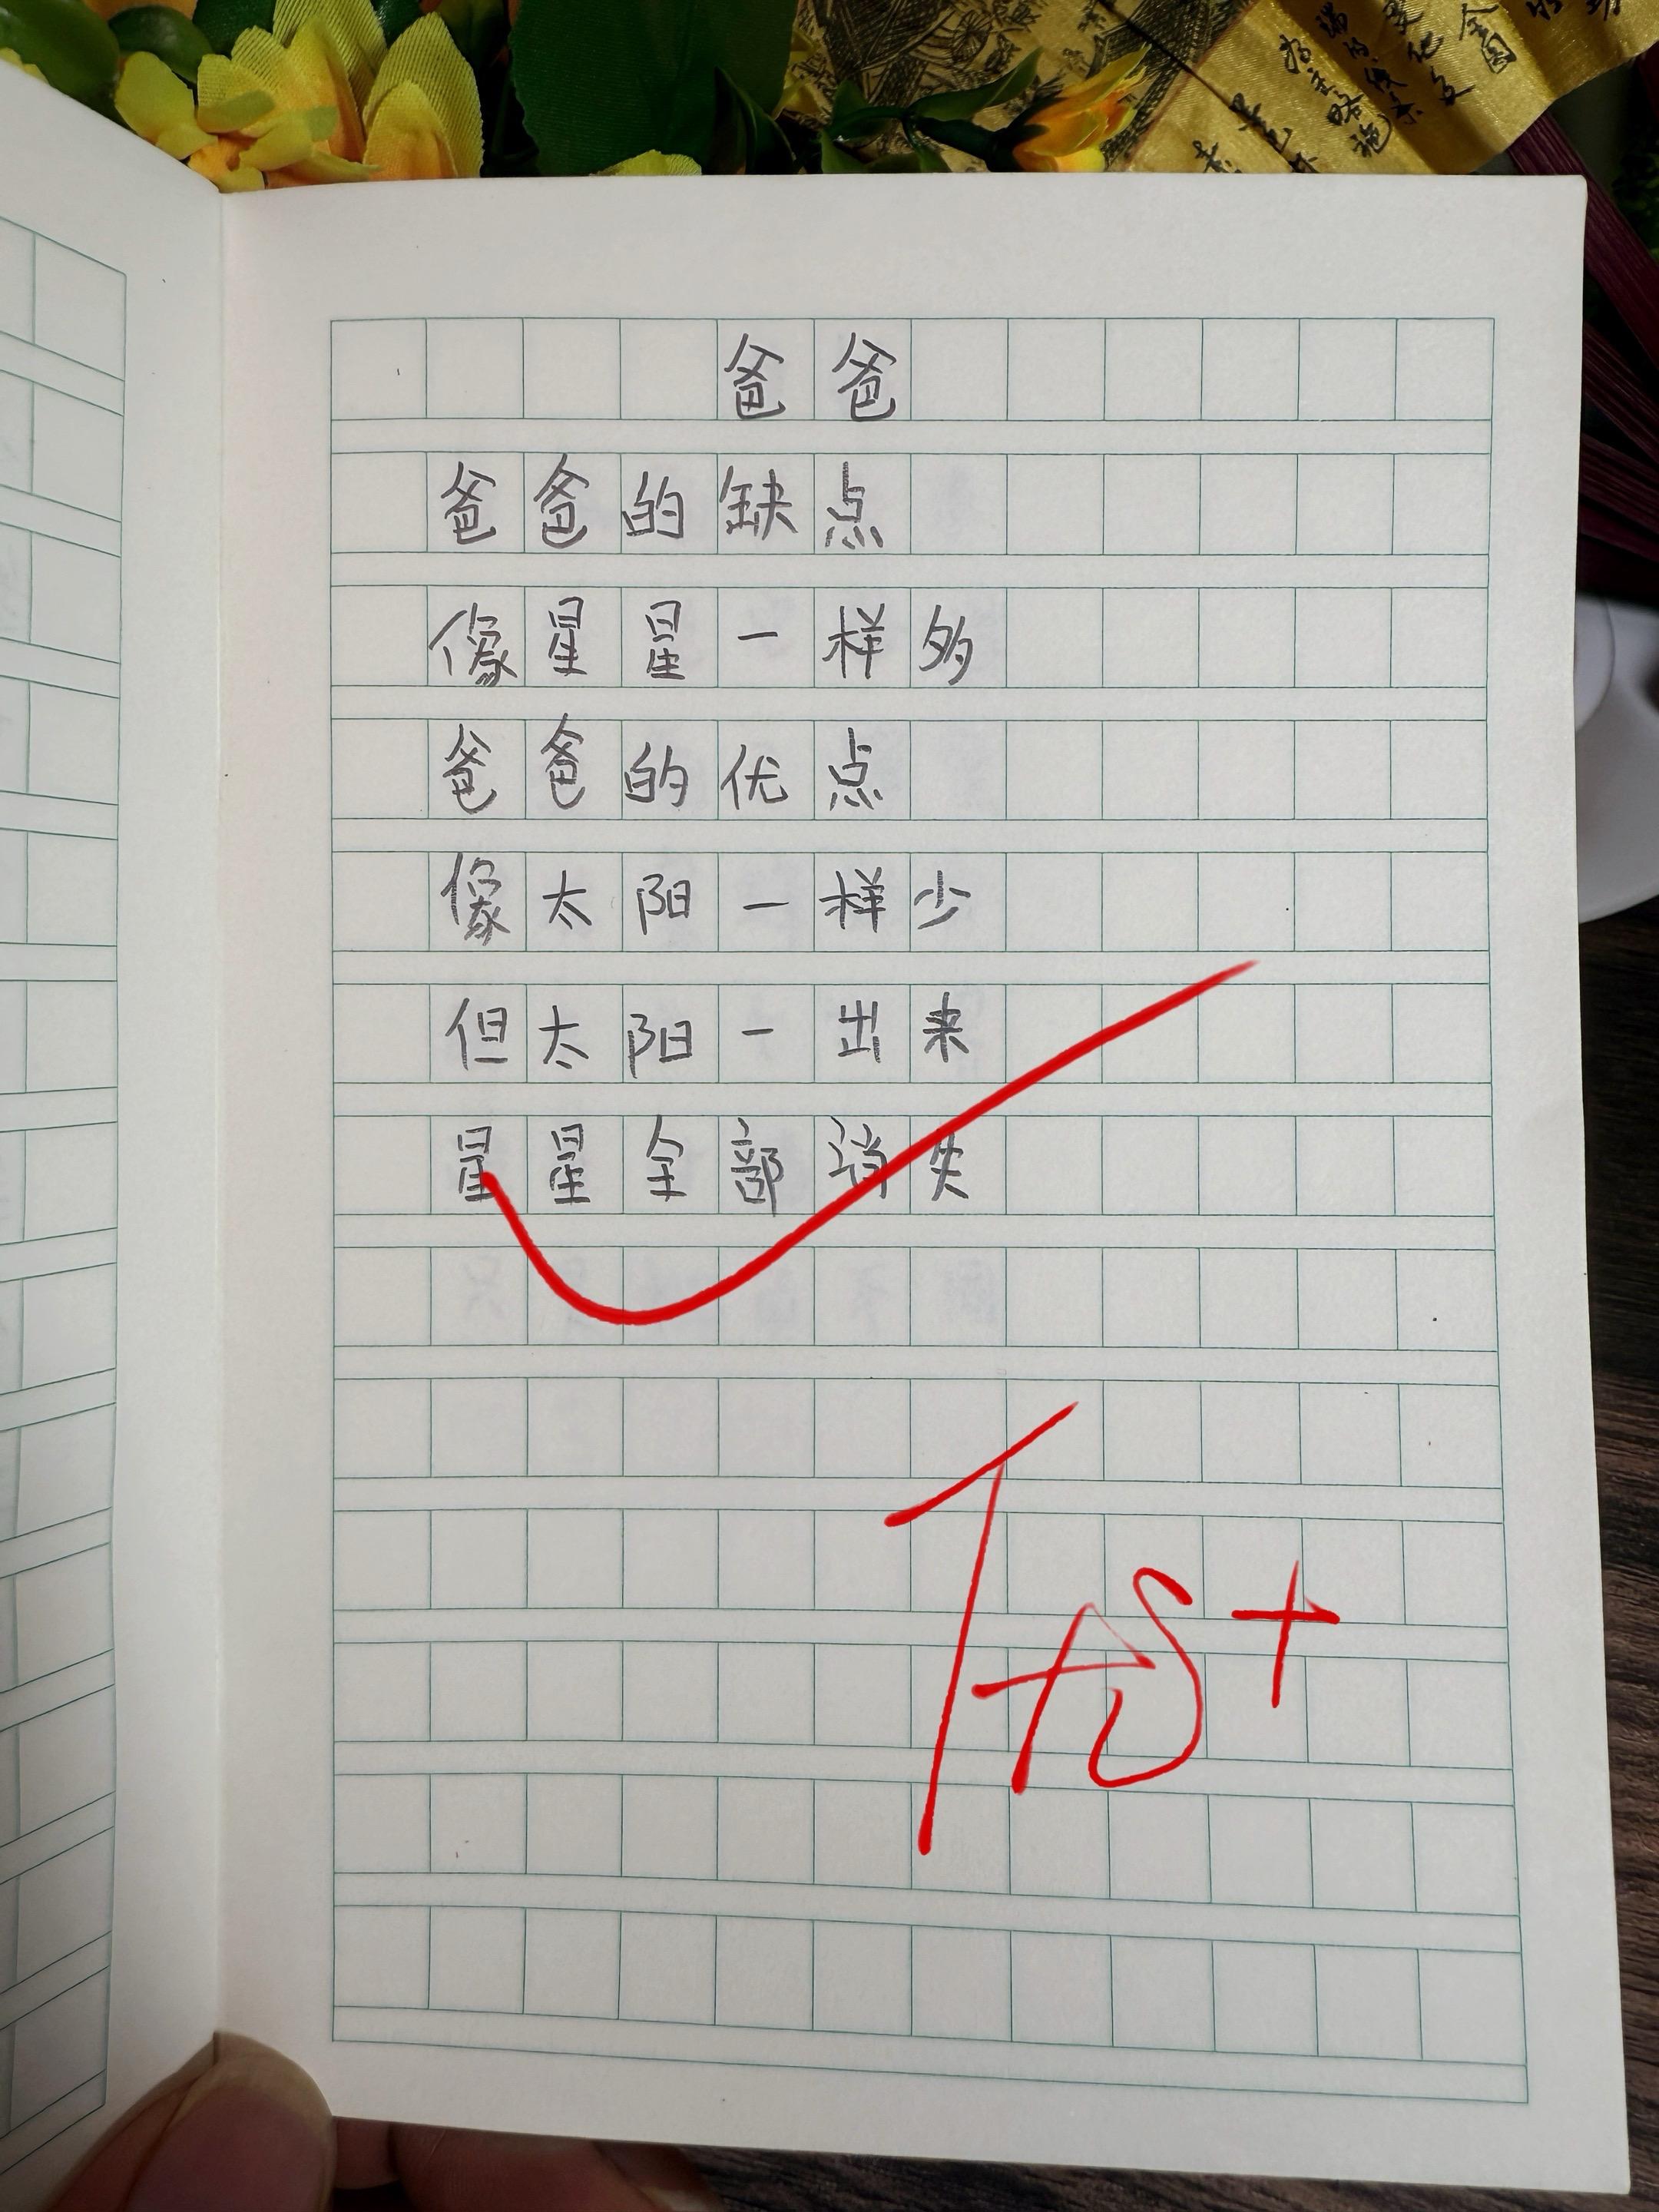 爸爸
爸爸的缺点
像星星一样多
爸爸的优点
像太阳一样少
但太阳一出来
星星全部消失